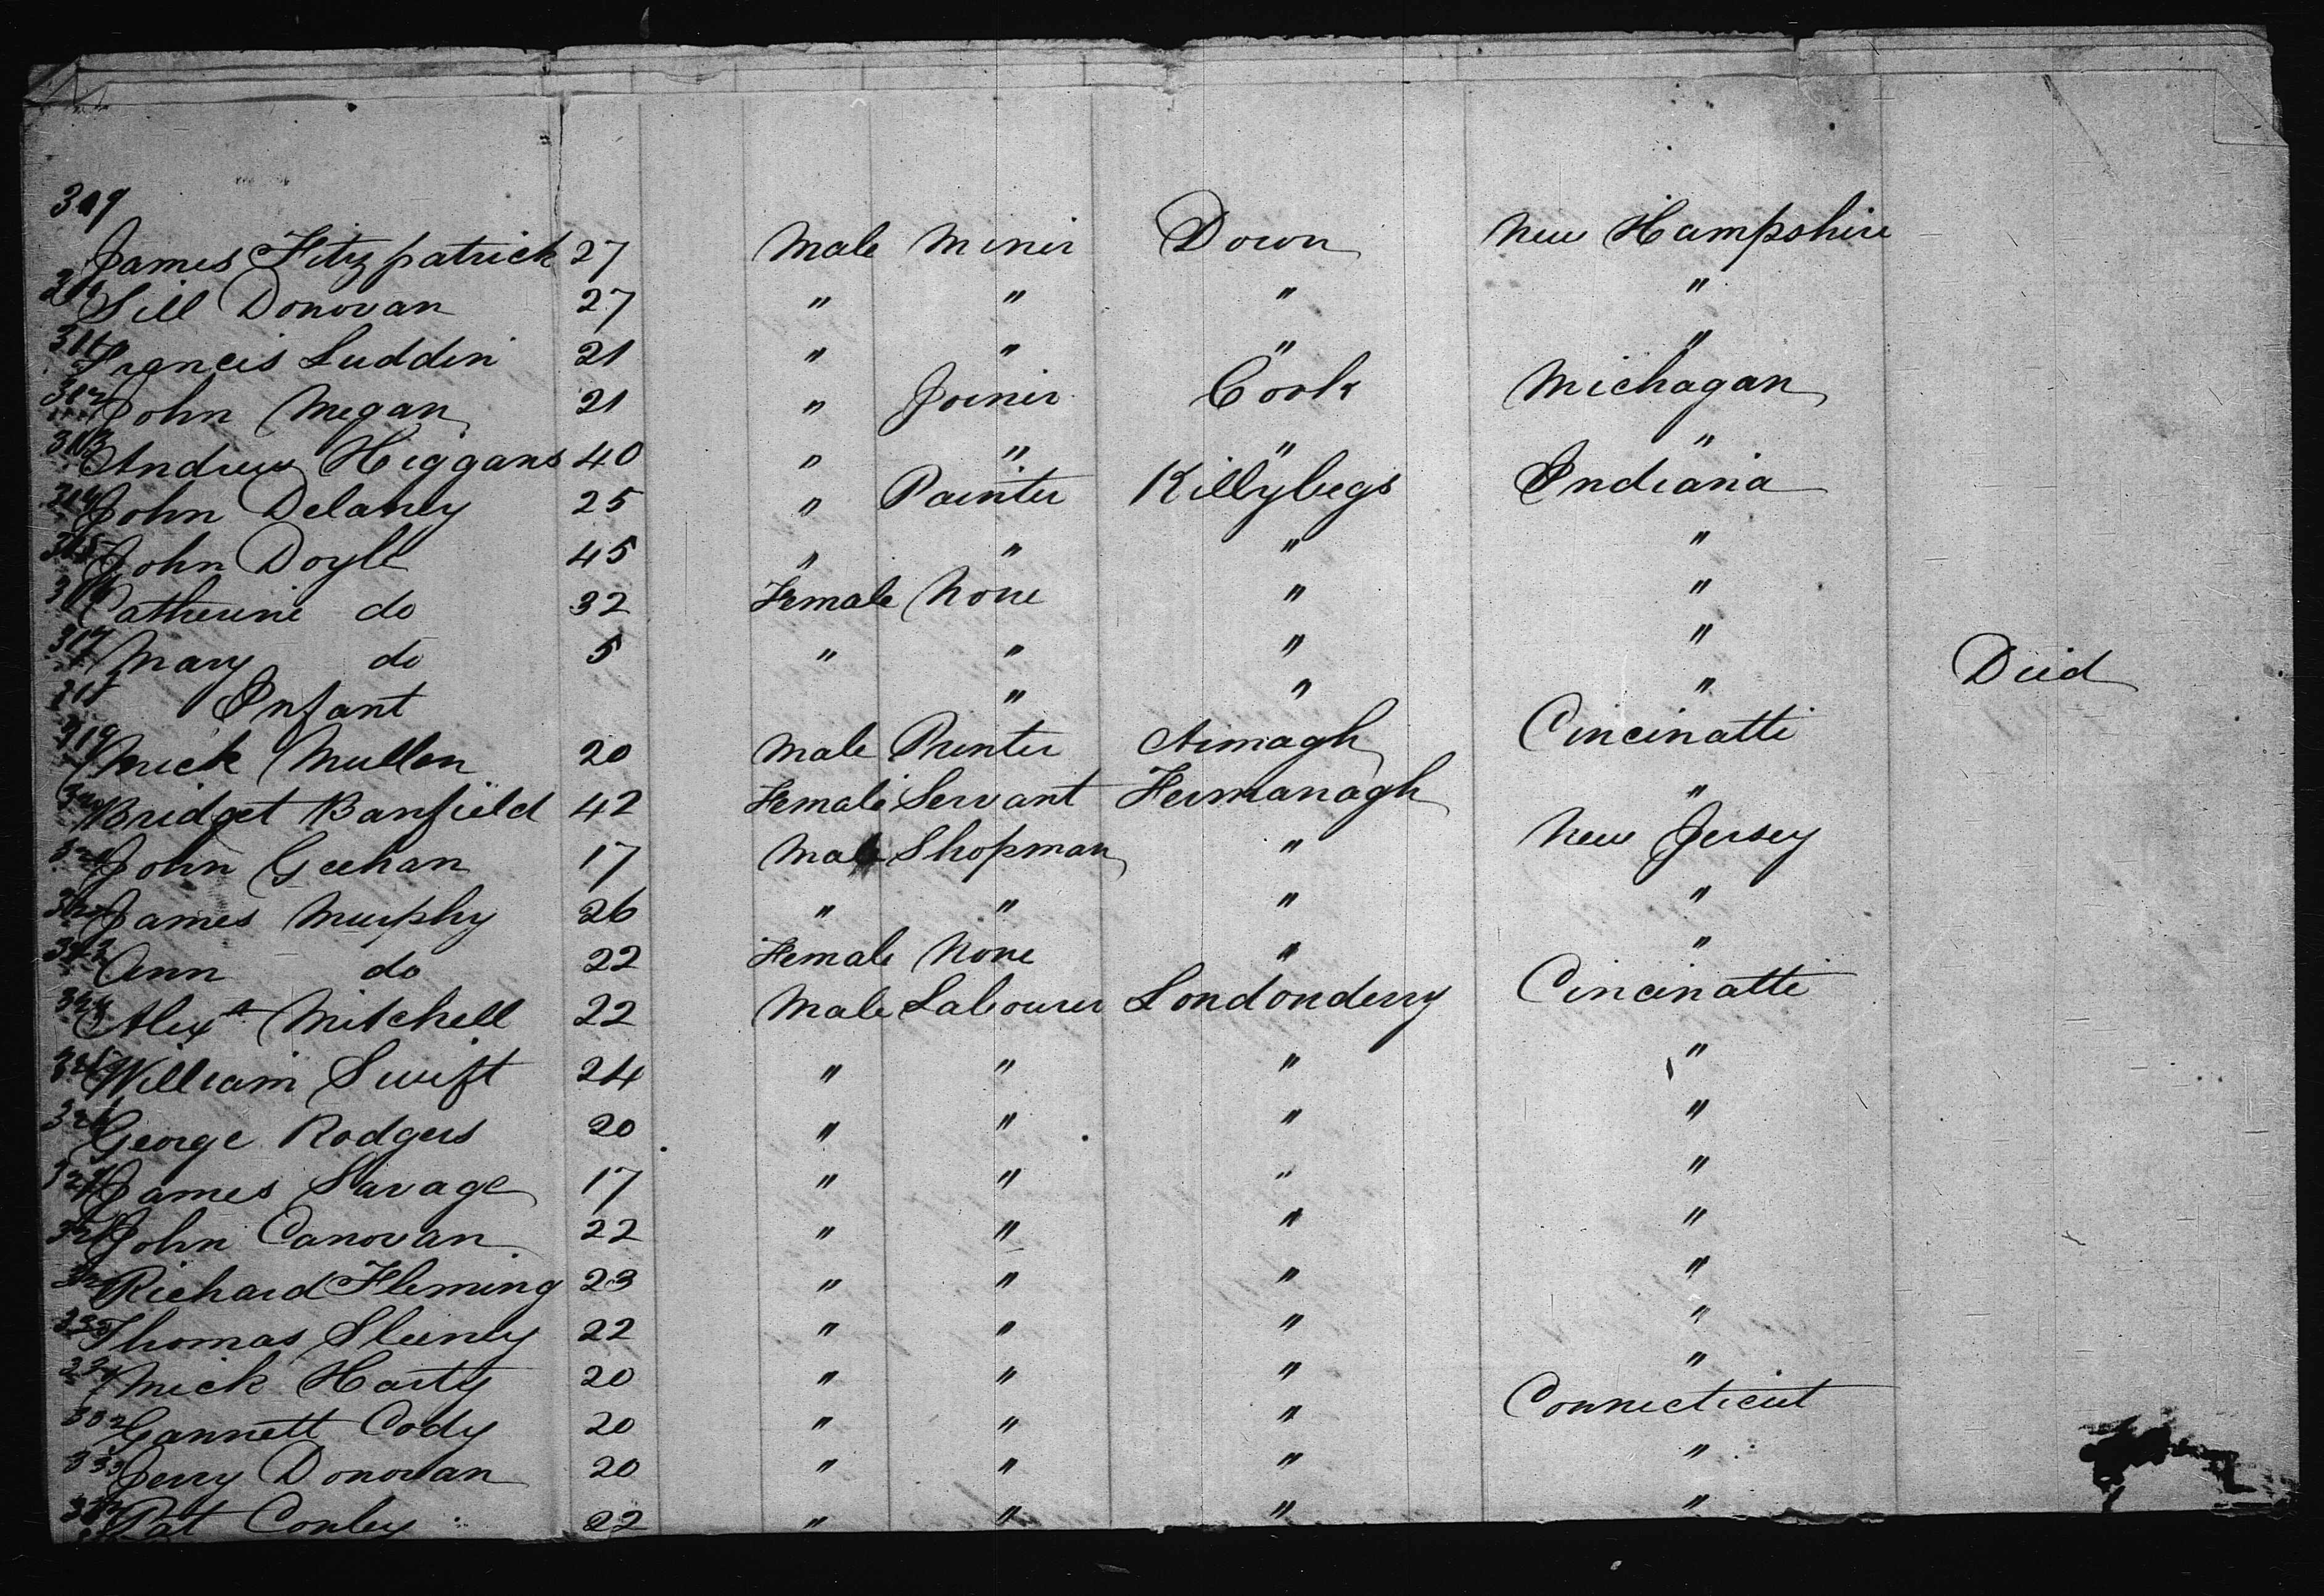 309
James Fitzpatrick 27 Male Miner Down New Hampshire
310 Sill Donovan 27 " " " "
311 Francis Luddin 21 " " " "
312 John Megan 21 " Joiner Cork Michagan
313 Andrew Higgans 40 " " " "
314 John Delaney 25 " Painter Killybegs Indiana
315 John Doyle 45 " " " "
316 Catherine do 32 Female None " "
317 Mary do 5 " " " "
318 Infant " " " Died
319 Mick Mullen 20 Male Printer Armagh Cincinatti
320 Bridget Banfield 42 Female Servant Fermanagh "
321 John Geehan 17 Male Shopman " New Jersey
322 James Murphy 26 " " " "
323 Ann do 22 Female None " "
324 Alexr Mitchell 22 Male Labourer Londonderry Cincinatti
325 William Swift 24 " " " "
326 George Rodgers 20 " " " "
327 James Savage 17 " " " "
328 John Canovan 22 " " " "
329 Richard Fleming 23 " " " "
330 Thomas Sleeney 22 " " " "
331 Mick Harty 20 " " " "
332 Gannett Cody 20 " " " Connecticut
333 Jerry Donovan 20 " " " "
334 Pat Conley 22 " " " "